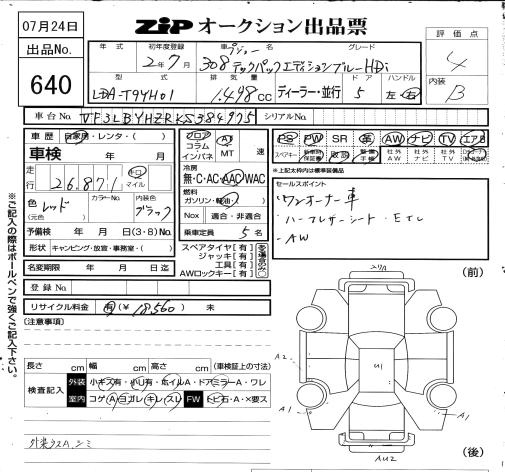 07月24日
出品No.
640
ZIP オークション出品票
評価点
4
内装
B
年式
初年度登録
車名
グレード
2年7月
プジョー
308 テックパックエディションブルーHDi
型式
排気量
ドア
ハンドル
LDA-T9YH01
1,498cc
ディーラー・並行
5
左・右
車台No.
VF3LBYHZRKS384975
シリアルNo.
車歴
自家用・レンタ・( )
車検
年 月
走行
26,871
キロ
マイル
色
レッド
(元色)
カラーNo.
内装色
ブラック
予備検
年 月 日 (3・8) No.
形状
キャンピング・放宣・事務室・( )
名変期限
年 月 日迄
登録No.
リサイクル料金
有 (¥ 18,560) 未
(注意事項)
フロア
コラム
インパネ
AT
MT
速
冷房
無・C・AC・AAC・WAC
燃料
ガソリン・軽油・( )
Nox
適合・非適合
乗車定員
5名
スペアタイヤ[有]
ジャッキ[有]
工具[有]
AWロックキー[有]
PS PW SR 革 AW ナビ TV エアB
スペアキー
取説
社外AW
社外ナビ
社外TV
*上記太枠内は標準装備品
セールスポイント
ワンオーナー車
ハーフレザーシート・ETC
・AW
(前)
A2
U1
A1
A1
AU2
(後)
長さ cm 幅 cm 高さ cm (車検証上の寸法)
検査記入
外装
小キズ有・小U有・ホイルA・ドアミラーA・ワレ
室内
コゲA・ヨゴレ・キレ・スレ
FW
トビ石・A・X要ス
外装ウスA、シミ
※ご記入の際はボールペンで強くご記入下さい。